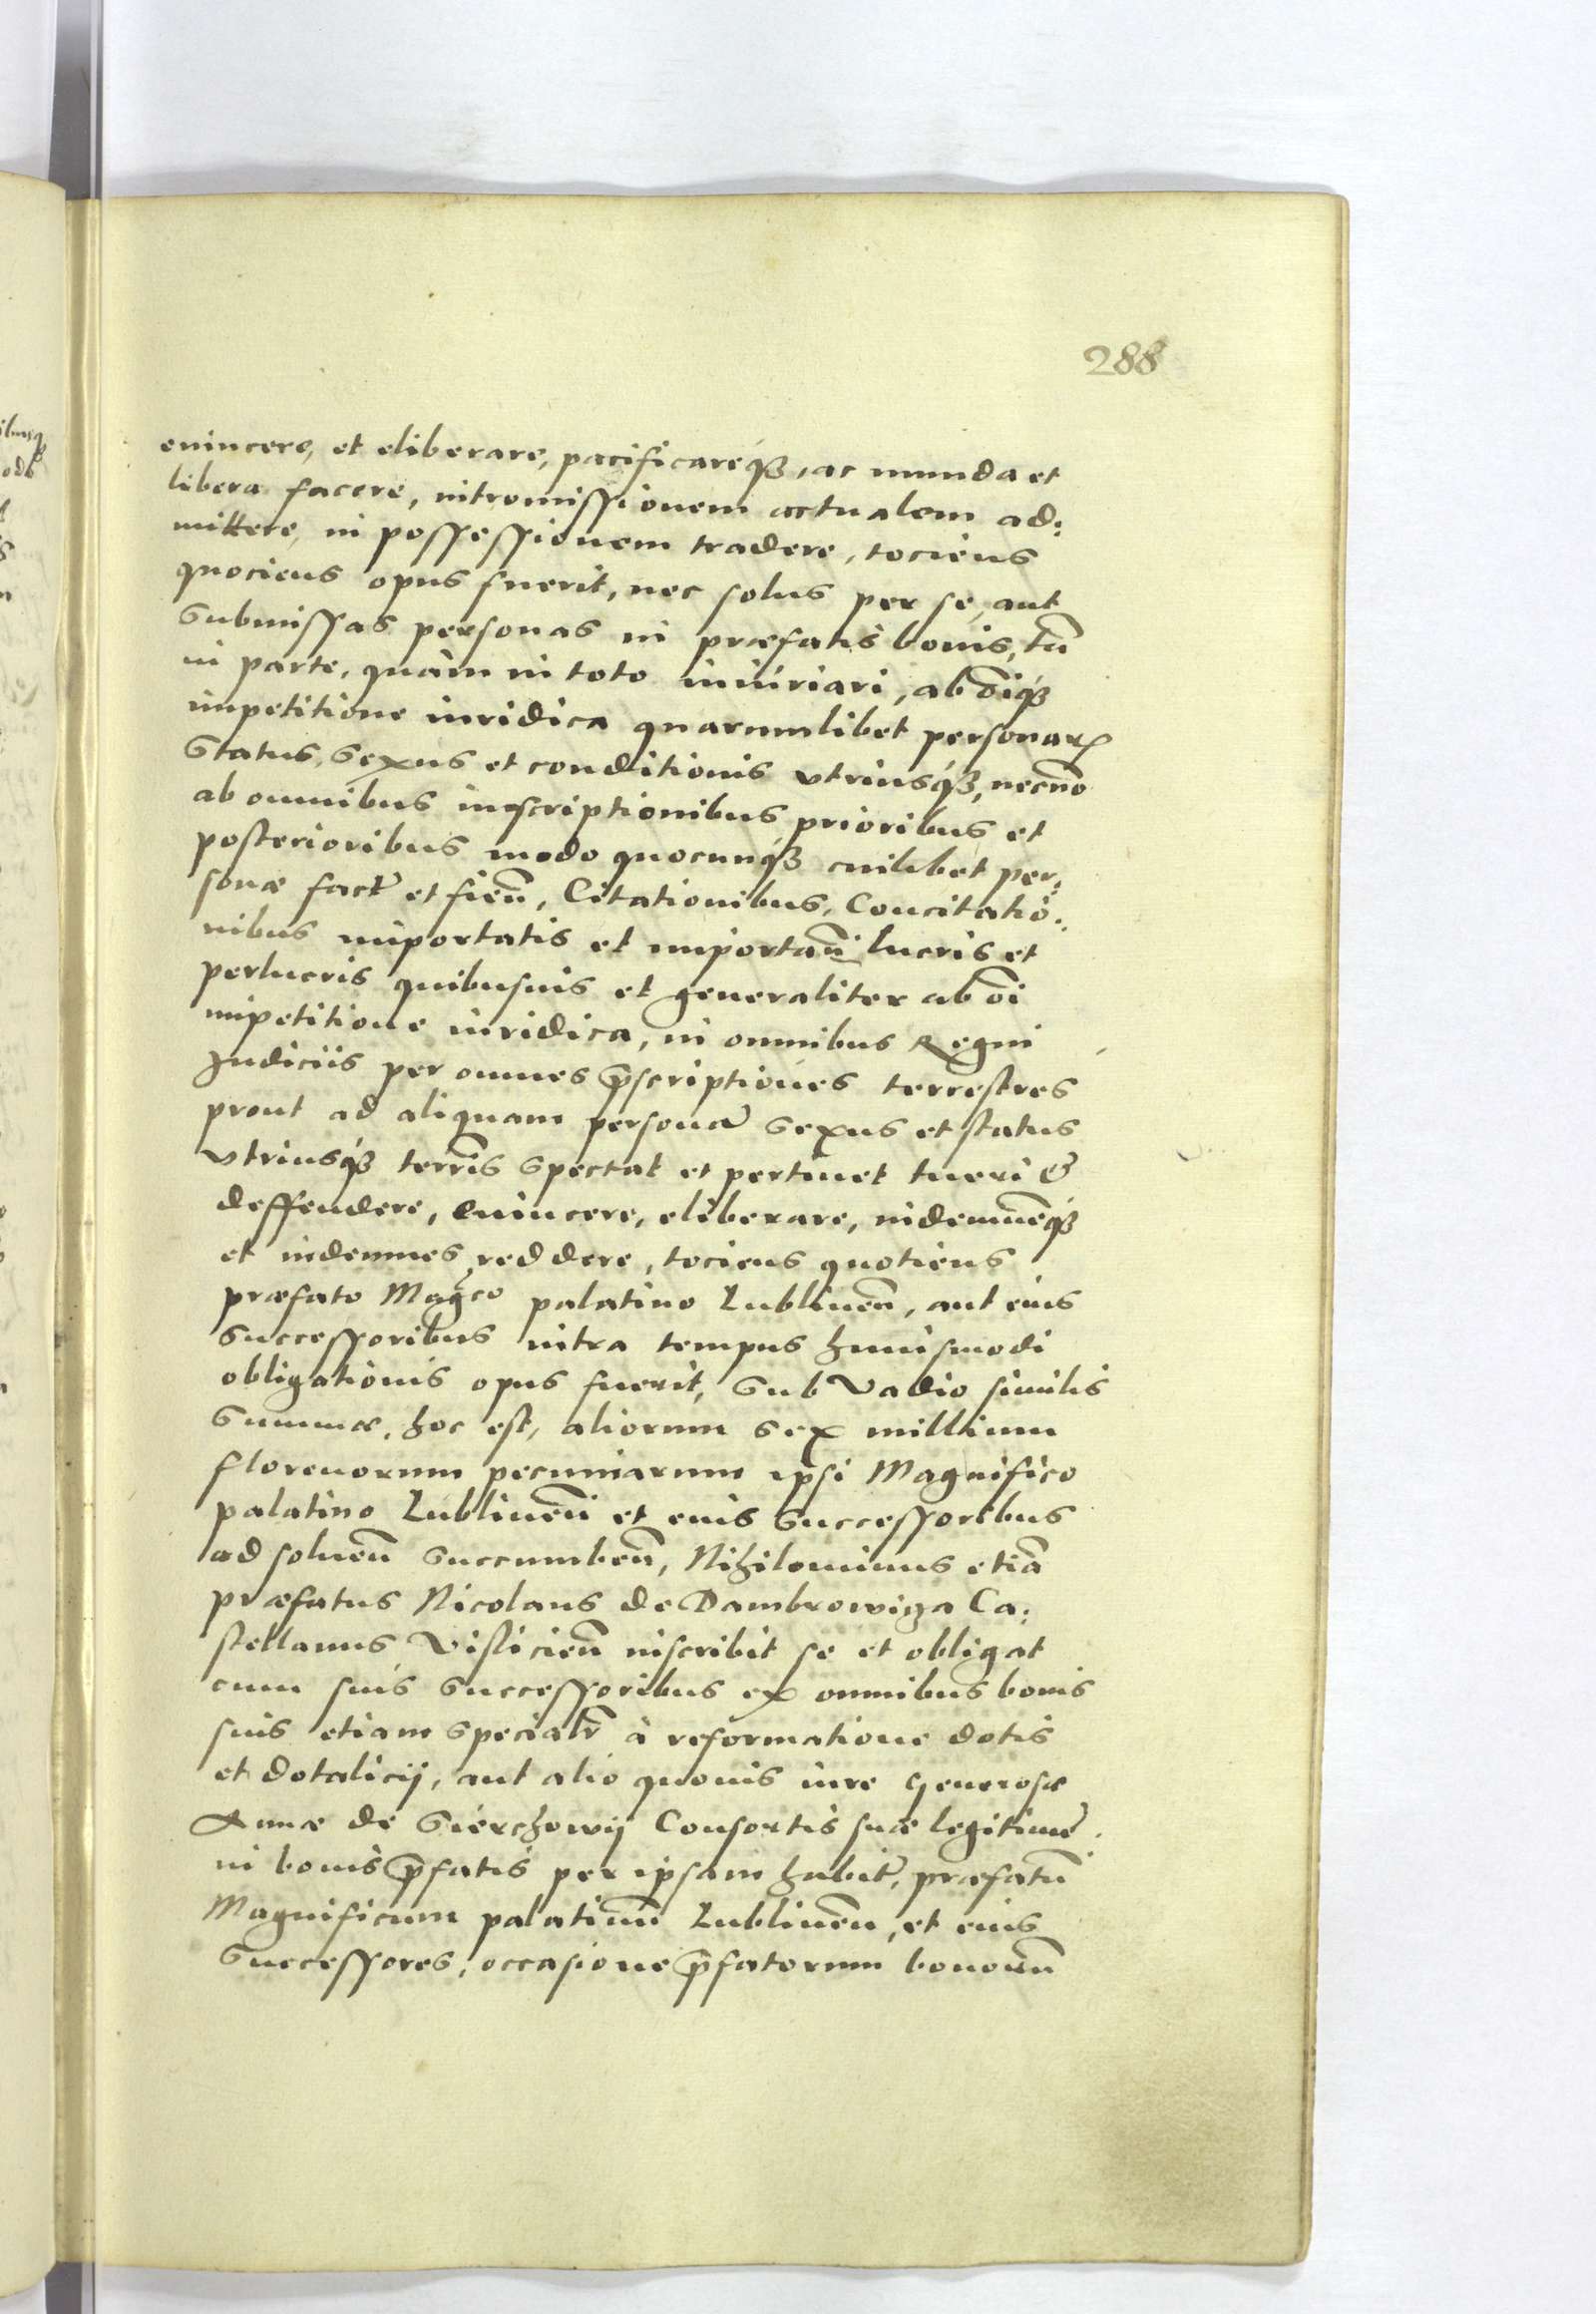 288
euincere, et eliberare, pacificareq3, ac munda et
libera facere, intromissionem actualem ad:
mittere, in possessionem tradere, tociens
quociens opus fuerit, nec solus per se, aut
submissas personas in præfatis bonis, tã
in parte, quàm in toto iniuriari, ab oĩq3
impetitione iuridica quarumlibet personarꝝ
status, sexus et conditionis vtriusq3, necnõ
ab omnibus inscriptionibus prioribus et
posterioribus modo quocunq3 cuilibet per:
sonæ fact̃ et fieñ, Citationibus, Concitatio:
nibus importatis et importañ lucris et
perlucris quibusuis et generaliter ab oĩ
impetitione iuridica, in omnibus Regni
Iudiciis per omnes p̃scriptiones terrestres
prout ad aliquam personã sexus et status
vtriusq3 terrĩs spectat et pertinet tueri &
deffendere, euincere, eliberare, indemnẽq3
et indemnes reddere, tociens quotiens
præfato Mag̃co palatino Lublineñ, aut eius
successoribus intra tempus huiusmodi
obligationis opus fuerit, sub Vadio similis
summæ, hoc est, aliorum sex millium
florenorum pecuniarum ipsi Magnifico
palatino Lublineñ et eius successoribus
ad solueñ succumbeñ, Nihilominus etiã
præfatus Nicolaus de Dambrowiza Ca:
stellanus Visliciеñ inscribit se et obligat
cum suis successoribus ex omnibus bonis
suis etiam specialr̃ à reformatione dotis
et dotalicij, aut alio quouis iure Generosæ
Annæ de Sierchowij Consortis suæ legitimę
in bonis p̃fatis per ipsam habit̃, præfatũ
Magnificum palatinũ Lublineñ, et eius
successores, occasione p̃fatorum bonorũ